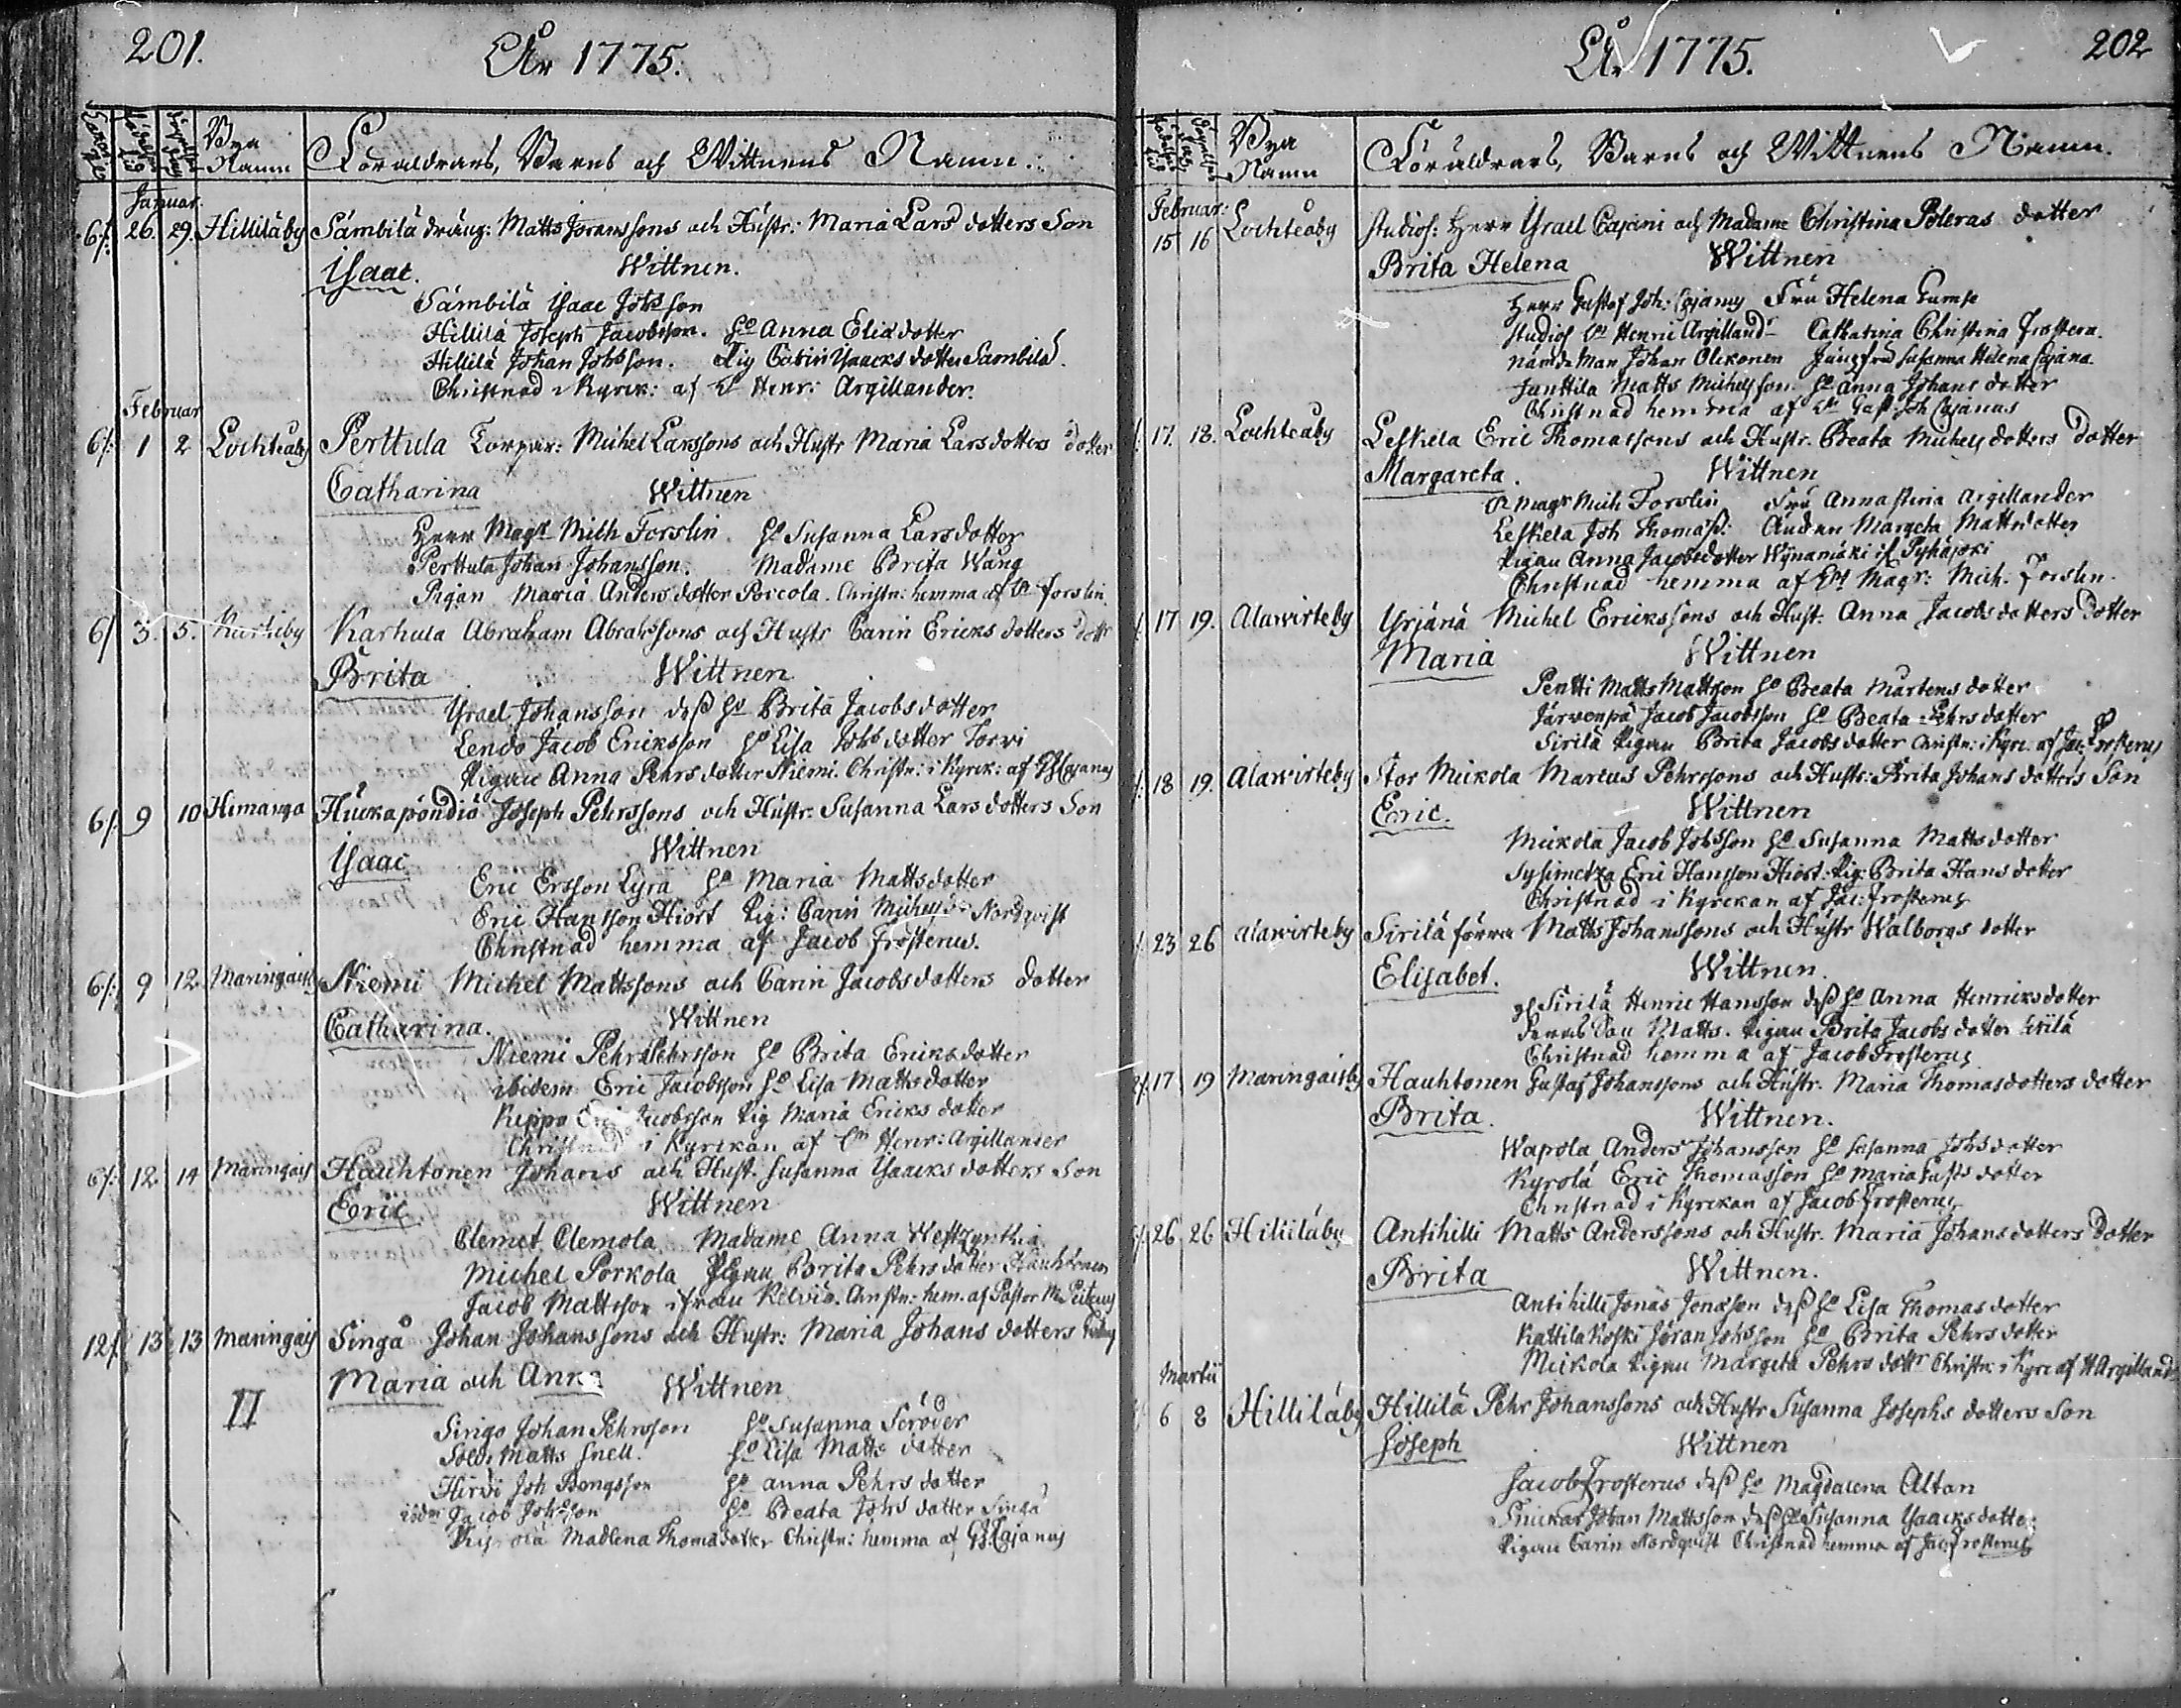 201.
År 1775.
Bya Namn
Föräldrars, Barns och Wittnens Namn.
Januar.
6/: 26. 29. Hilliläby Sämbilä dräng: Matts Joranssons och Hustr: Maria Lars dotters Son
Isaac. Wittnen.
Sämbilä Isaac Johsson
Hillilä Joseph Jacobsson. Ho Anna Eliæ dotter
Hillilä Johan Johsson. Pig Carin Isaacks dotter Sämbilä.
Christnad i Kyrck: af Hr Henr: Argillander.
Februar
6/: 1 2 Lochteåby Perttula Torpar: Michel Larssons och Hustr Maria Lars dotters dotter
Catharina Wittnen
Herr Magr Mich Forslin. Ho Susanna Larsdotter
Perttula Johan Johansson. Madame Brita Wang
Pigan Maria Anders dotter Porcola. Christn: hemma af Hr Forslin.
6/ 3. 5. Karhula Abraham Abrahssons och Hustr Carin Ericks dotters dottr
Brita Wittnen
Israel Johansson dess Ho Brita Jacobs dotter
Lendo Jacob Ericksson Ho Lisa Johs dotter Torvi
Pigan Anna Pehrs dotter Niemi. Christn: i Kyrck: af GJCajanus
6/: 9 10 Himanga Huckapöndiö Joseph Pehrssons och Hustr: Susanna Lars dotters Son
Isaac Wittnen
Eric Ersson Lyra Ho Maria Mattsdotter
Eric Hansson Hiort Pig: Carin Michels dr Nordqvist
Christnad hemma af Jacob Frosterus.
6/: 9 12. Maringaisby Niemi Michel Mattssons och Carin Jacobsdotters dotter
Catharina. Wittnen
Niemi Pehr Pehrsson Ho Brita Ericksdotter
ibidem Eric Jacobsson Ho Lisa Matts dotter
Keppo Eric Jacobsson Pig Maria Ericks dotter
Christnad i Kyrckan af Hr Henr: Argillander
6/: 12. 14 Maringais Hauhtonen Johans och Hust. Susanna Isaacks dotters Son
Eric Wittnen
Clemet Clemola Madame Anna Westzynthia
Michel Porkola Pigan Brita Pehrs dotter Hauhtonen
Jacob Mattsson ifrån Kelviå. Christn: hem. af Pastor M. Peitzius
12/. 13 13 Maringais Singå Johan Johanssons och Hustr: Maria Johans dotters
II Maria och Anna Wittnen
Singo Johan Pehrsson Ho Susanna Scröder
Sold: Matts Snell. Ho Lisa Matts dotter
Hirvi Joh Bengsson Ho Anna Pehrs dotter
ibdm Jacob Johsson Ho Beata Johs dotter Singå
Madlena Thomædotter Christn: hemma af GJCajanus
År 1775.
202
Bya Namn
Föräldrars, Barns och Wittnens Namn.
Februar:
15 16 Lochteåby Studios: Herr Israel Cajani och Madame Christina Poleras dotter
Brita Helena Wittnen
Herr Gustaf Joh: Cajanus Fru Helena Gumse
Studios Hr Henric Argillandr Catharina Christina Frostera.
Nämde Man Johan Olickonen Jungfru Susanna Helena Cajana
Junttila Matts Michelsson Ho Anna Johans dotter
Christnad hemma af Hr Gust: Joh Cajanus
17. 18. Lochteåby Leskela Eric Thomassons och Hustr. Beata Michels dotters dotter
Margareta. Wittnen
Hr Magr Mich Forslin Fru Anna Stina Argillander
Leskela Joh Thomass: Margeta Matts dotter
Pigan Anna Jacobsdotter Wynämäki if Pyhäjoki
Christnad hemma af Hr Magr: Mich. Forslin.
17 19. Alawirteby Yrjänä Michel Erickssons och Hust. Anna Jacobs dotters dotter
Maria Wittnen
Pentti Matts Mattsson Ho Beata Mårtens dotter
Järvenpä Jacob Jacobsson Ho Beata Pehrs dotter
Sirilä Pigan Brita Jacobs dotter Christn: i Kyrc. af Jac: Frosterus
18 19. Alawirteby Stor Meickola Marcus Pehrssons och Hustr: Brita Johans dotters Son
Eric. Wittnen
Meickola Jacob Johsson Ho Susanna Matts dotter
Sysimetzä Eric Hansson Hiort. Pig: Brita Hans dotter
Christnad i Kyrckan af Jac: Frosterus
23 26 Alawirteby Sirilä förra Matts Johanssons och Hustr Walborgs dotter
Elisabet. Wittnen.
Sirilä Henric Hansson dess Ho Anna Henricks dotter
Son Matts. Pigan Brita Jacobs dotter Sirilä
Christnad hemma af Jacob Frosterus
17 19 Maringaisby Hauhtonen Gustaf Johanssons och Hustr. Maria Thomasdotters dotter
Brita. Wittnen.
Wapola Anders Johansson Ho Susanna Johsdotter
Kyrolä Eric Thomasson Ho Maria Gusts dotter
Christnad i Kyrckan af Jacob Frosterus
26 26 Hilliläby Antihilli Matts Anderssons och Hustr. Maria Johans dotters dotter
Brita Wittnen.
Antihilli Jonas Jonæson dess Ho Lisa Thomas dotter
Kattilakoski Jöran Johsson Ho Brita Pehrs dotter
Meickola Pigan Margeta Pehrs dottr Christn: i Kyrc af H Argilland
Martii
6 8 Hilliläby Hillilä Pehr Johanssons och Hustr Susanna Josephs dotters Son
Joseph Wittnen
Jacob Frosterus dess Ho Magdalena Altan
Snickar Johan Mattsson dess Ho Susanna Isaacks dotter
Pigan Carin Nordqvist Christnad hemma af Jac: Frosterus